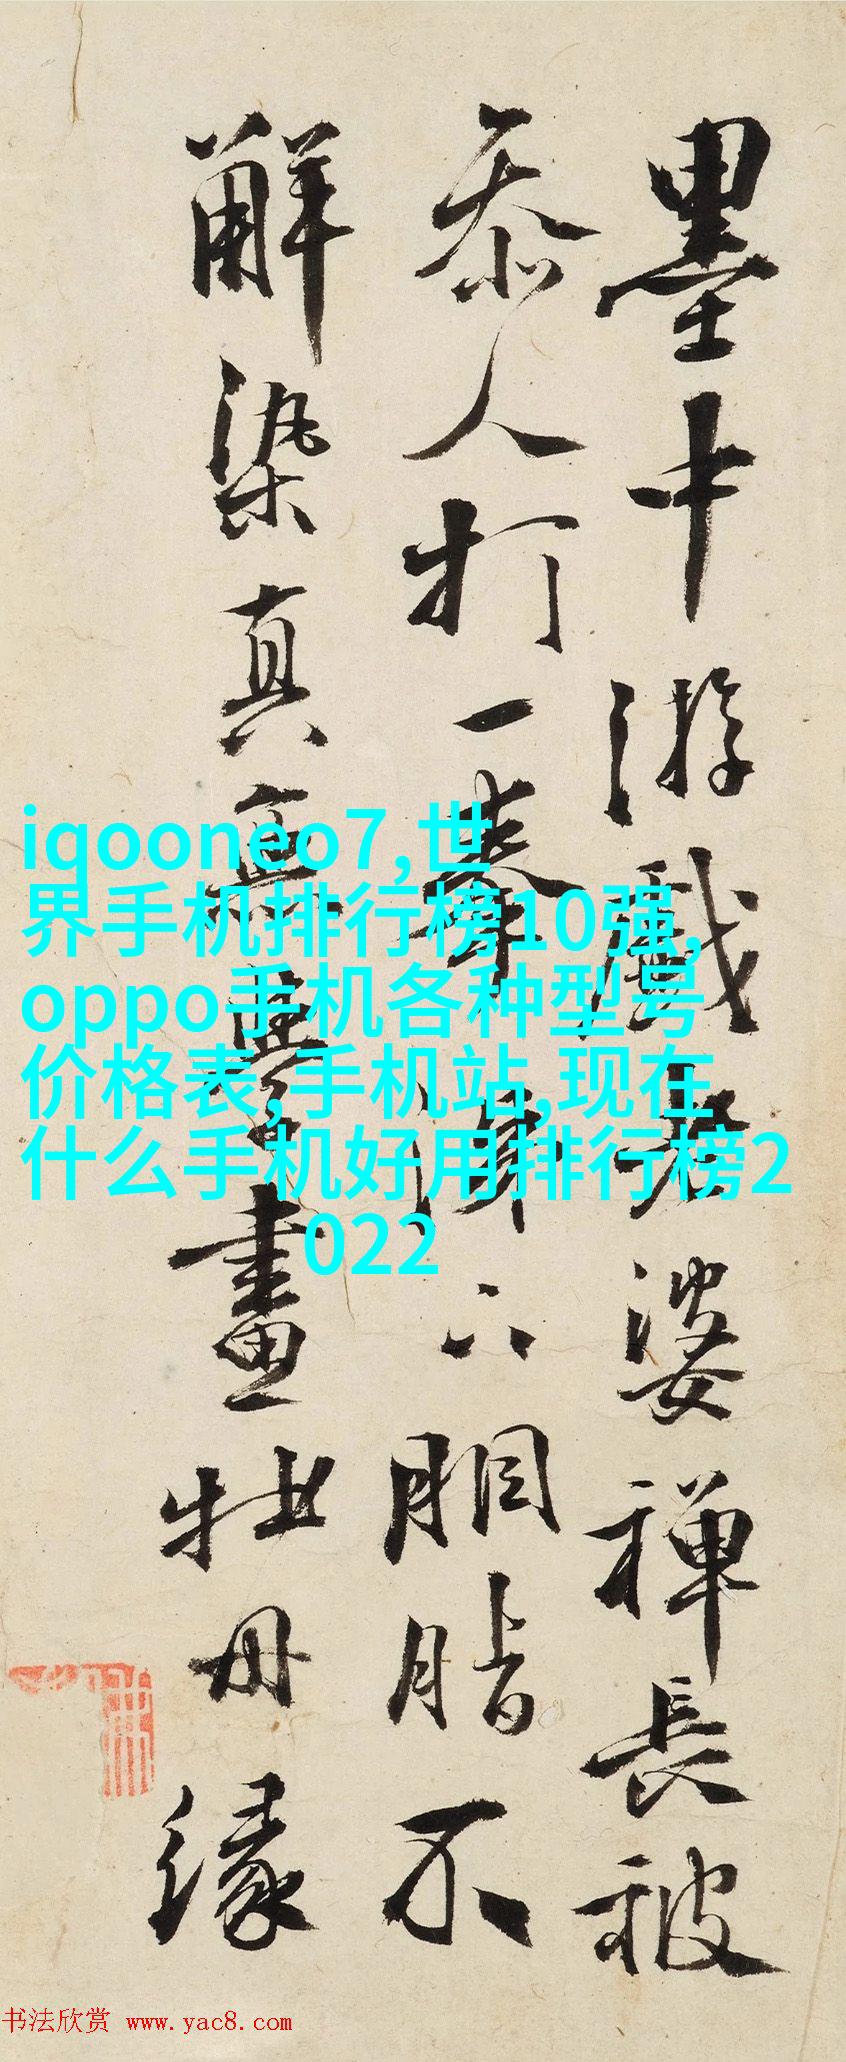 墨中游戲老婆禪長被
参人打一拳涕下胭脂不
解染真無學畫牡丹緣
iqooneo7,世
界手机排行榜10强,
oppo手机各种型号
价格表,手机站,现在
什么手机好用排行榜2
022
书法欣赏 www.yac8.com